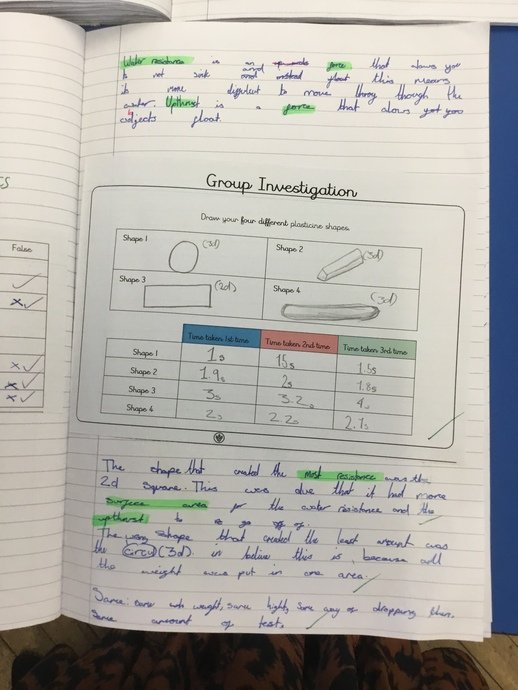 Water resistance is an upwards force that alows you
to not sink and instead float this means
is more difficult to move throug though the
water. Upthrust is a force that alows yot you
objects float.
Group Investigation
Draw your four different plasticine shapes.
Shape 1 (3d)
Shape 2 (3d)
Shape 3 (2d)
Shape 4 (3d)
False
Time taken 1st time Time taken 2nd time Time taken 3rd time
Shape 1 1s 15s 1.5s
Shape 2 1.9s 2s 1.8s
Shape 3 3s 3.2s 4s
Shape 4 2s 2.2s 2.1s
The shape that created the most resistance was the
2d square. This was due that it had more
surface area for the water resistance and the
upthrust to
The shape that created the least amount was
the (3d). in belive this is, because all
the weight was put in one area.
Same: same weight, same hight, same way of dropping them.
Same amount of tests.